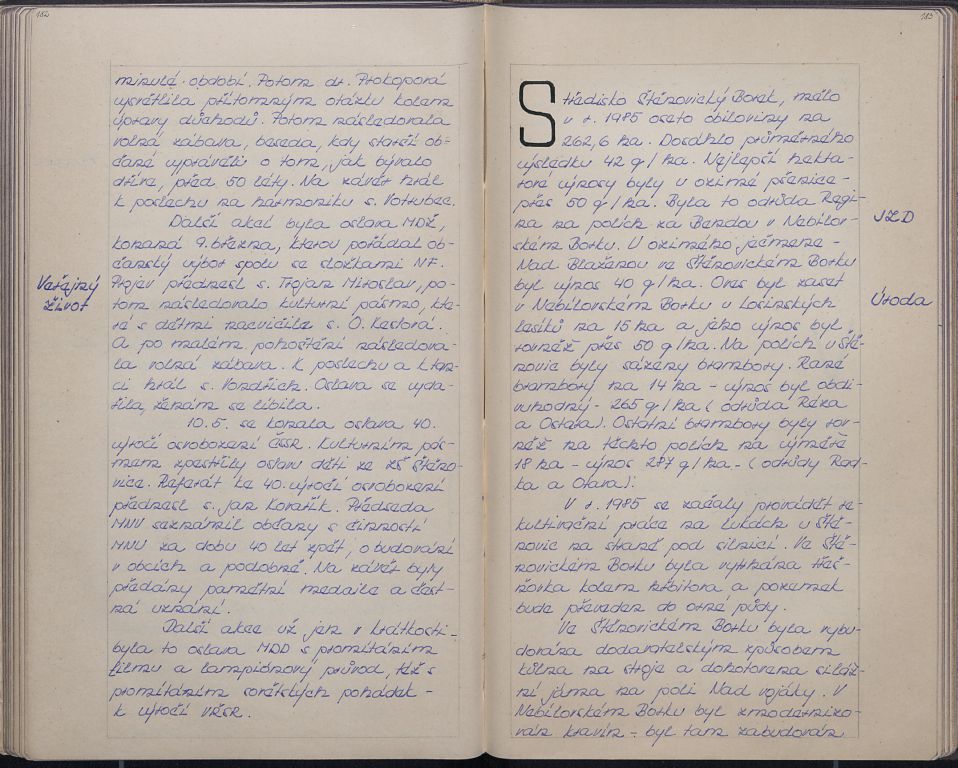 182
minulé období. Potom dr. Prokopová
vysvětlila přítomným otázku kolem
úpravy důchodů. Potom následovala
volná zábava, beseda, kdy starší ob-
čané vyprávěli o tom, jak bývalo
dříve, před 50 léty. Na závěr hrál
k poslechu na harmoniku s. Votrubec.
Další akcí byla oslava MDŽ,
konaná 9. března, kterou pořádal ob-
čanský výbor spolu se složkami NF.
Veřejný
život
Projev přednesl s. Trojan Miroslav, po-
tom následovalo kulturní pásmo, kte-
ré s dětmi nacvičila s. O. Keslová.
A po malém pohoštění následova-
la volná zábava. K poslechu a k tan-
ci hrál s. Vondřich. Oslava se vyda-
řila, ženám se líbila.
10.5. se konala oslava 40.
výročí osvobození ČSSR. Kulturním pás-
mem zpestřily oslavu děti ze ZŠ Štěno-
vice. Referát ke 40. výročí osvobození
přednesl s. Jan Kovařík. Předseda
MNV seznámil občany s činností
MNV za dobu 40 let zpět, o budování
v obcích a podobně. Na závěr byly
předány pamětní medaile a čest-
ná uznání.
Další akce už jen v krátkosti -
byla to oslava MDD s promítáním
filmu a lampiónový průvod, též s
promítáním sovětských pohádek -
k výročí VŘSR.
183
Středisko Štěnovický Borek, mělo
v r. 1985 oseto obiloviny na
262,6 ha. Dosáhlo průměrného
výsledku 42 q/ha. Nejlepší hekta-
rové výnosy byly u ozimé pšenice -
přes 50 q/ha. Byla to odrůda Regi-
na na polích za Bendou v Nebílov-
JZD
ském Borku. U ozimého ječmene -
Nad Blaženou ve Štěnovickém Borku
byl výnos 40 q/ha. Oves byl zaset
v Nebílovském Borku u Losinských
Úroda
lesíků na 15 ha a jeho výnos byl
rovněž přes 50 q/ha. Na polích u Ště-
novic byly sázeny brambory. Rané
brambory na 14 ha - výnos byl obdi-
vuhodný - 265 q/ha (odrůda Réza
a Ostara). Ostatní brambory byly rov-
něž na těchto polích na výměře
18 ha - výnos 287 q/ha - (odrůdy Rad-
ka a Otava).
V r. 1985 se začaly provádět re-
kultivační práce na lukách u Ště-
novic na straně pod silnicí. Ve Ště-
novickém Borku byla vytrhána třeš-
ňovka kolem hřbitova a pozemek
bude převeden do orné půdy.
Ve Štěnovickém Borku byla vybu-
dována dodavatelským způsobem
kůlna na stroje a dohotovena siláž-
ní jáma na poli Nad vojáky. V
Nebílovském Borku byl zmodernizo-
ván kravín - byl tam zabudován